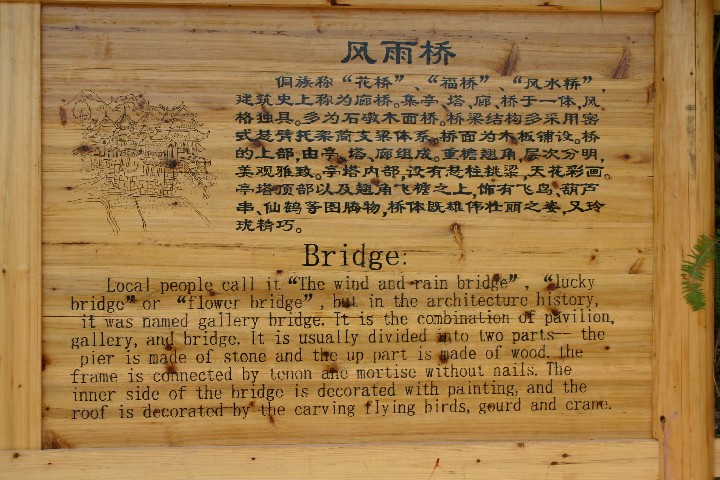 风雨桥
侗族称“花桥”、“福桥”、“风水桥”，
建筑史上称为廊桥。集亭、塔、廊、桥于一体，风
格独具。多为石礅木面桥。桥梁结构多采用密
式悬臂托架简支梁体系。桥面为木板铺设。桥
的上部，由亭、塔、廊组成。重檐翘角，层次分明，
美观雅致。亭塔内部，设有悬柱挑梁，天花彩画。
亭塔顶部以及翘角飞檐之上，饰有飞鸟、葫芦
串、仙鹤等图腾物，桥体既雄伟壮丽之姿，又玲
珑精巧。
Bridge:
Local people call it “The wind and rain bridge”, “lucky
bridge” or “flower bridge”, but in the architecture history,
it was named gallery bridge. It is the combination of pavilion,
gallery, and bridge. It is usually divided into two parts— the
pier is made of stone and the up part is made of wood. the
frame is connected by tenon ane mortise without nails. The
inner side of the bridge is decorated with painting, and the
roof is decorated by the carving flying birds, gourd and crane.